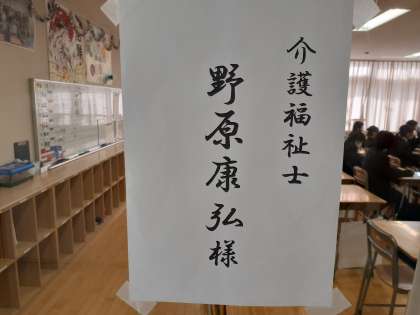 介護福祉士
野原康弘様